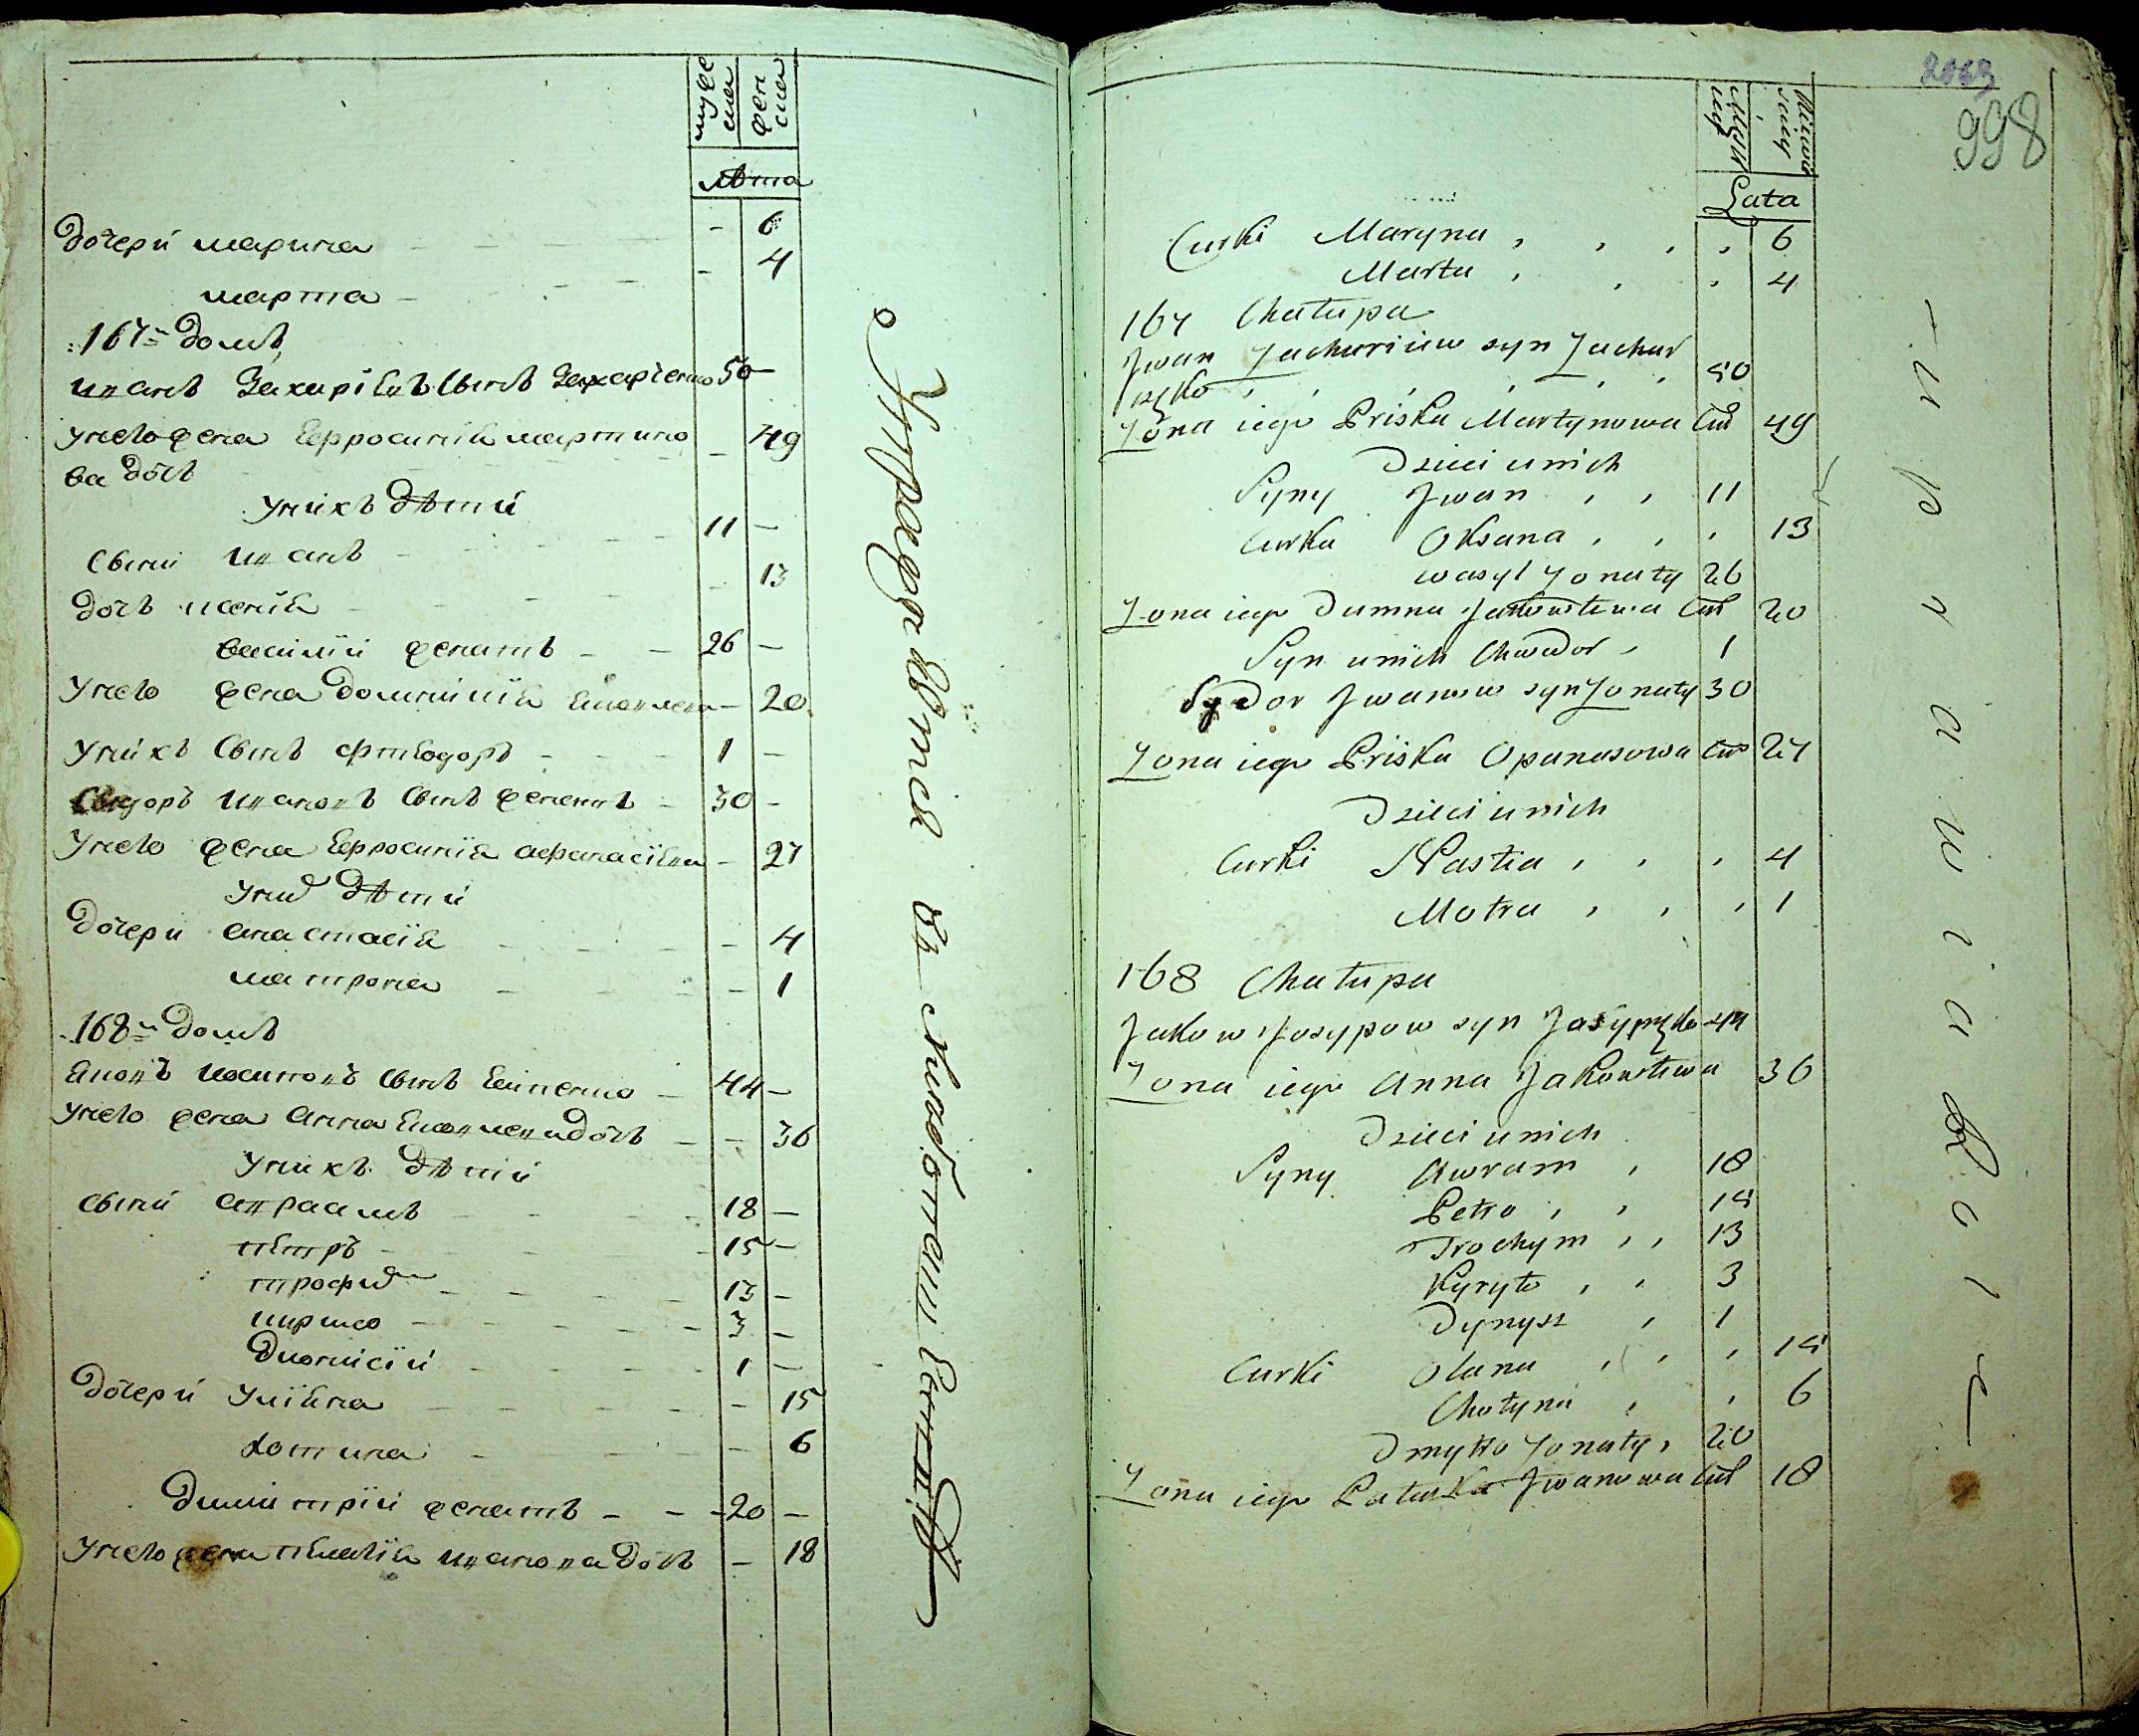 мужеска
женска
лѣта
дочери марина - 6
марта - 4
167й домъ
иванъ Захаріевъ сынъ Захарченко 50 -
унего жена Евросинія мартино - 49
ва дочь
унихъ дѣти
сыни иванъ 11 -
дочь ксенія - 13
василій женатъ 26 -
унего жена домникія - 20
унихъ сынъ фтеодоръ 1 -
Сидоръ ивановъ сынъ женатъ 30 -
унего жена Евросинія афанасіева - 27
уних дѣти
дочери анастасія - 4
матрона - 1
168й домъ
Яковъ иосиповъ сынъ 44 -
унего жена анна Яковлева дочь - 36
унихъ дѣти
сыни авраамъ 18 -
петръ 15 -
трофим 13 -
кирило 3 -
дионисій 1 -
дочери уліяна - 15
хотина - 6
димитрій женатъ 20 -
унего жена пелагія иванова дочь - 18
2063
998
Lata
Curki Maryna , , , , 6
Marta , , , 4
167 Chałupa
Jwan Zachariiuw syn Zachar
czko , , , , , , 50
Żona iego Priska Martynowa Cur 49
Dzieci unich
Syny Jwan , , 11
Curka Oksana , , , 13
wasyl żonaty 26
Żona iego Dumna Jakowlewa Cur 20
Syn unich Chwedor , 1
Sydor Jwanow syn żonaty 30
Żona iego Priska Opanasowa Cur 27
Dzieci unich
Curki Nastia , , , 4
Motra , , , 1
168 Chałupa
Jakow Josypow syn Jasypczko 44
Żona iego Anna Jakowlewa 36
Dzieci unich
Syny Awram , 18
Petro , , 15
Trochym , , 13
Kyryło , , 3
Dynysz , 1
Curki Olana , , , 15
Chotyna , , 6
Dmytro żonaty , 20
Żona iego Pałaska Jwanowa Cur 18